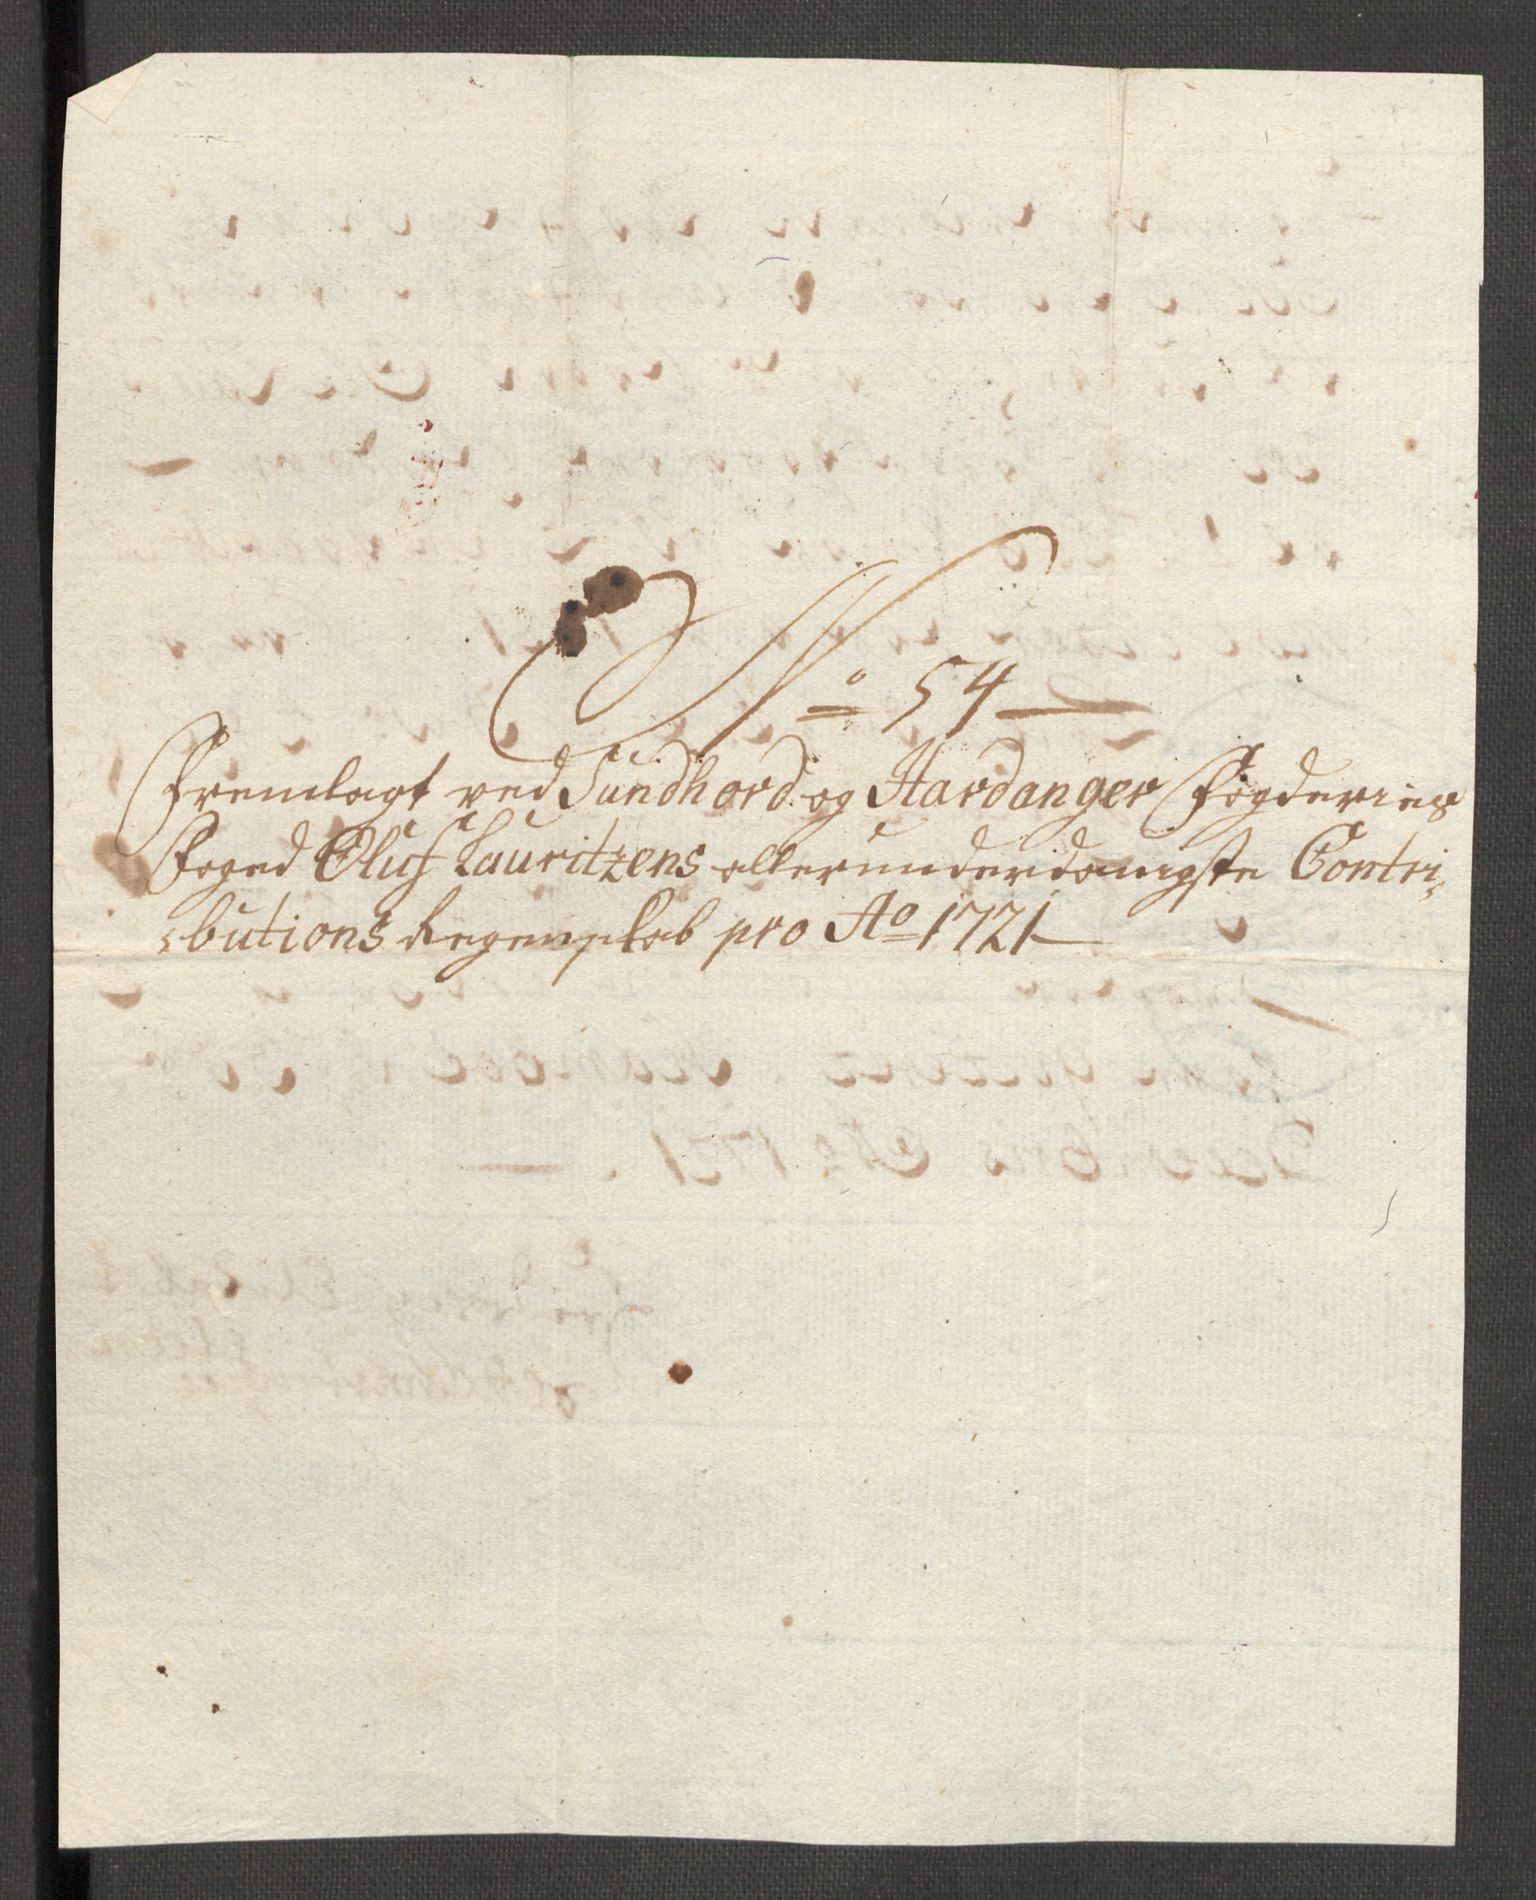 No 54
Fremlagt ved Sundhord: og Hardanger Fogderies
Foged Oluf Lauritzens allerunderdanigste Contri-
-butions Regenskab pro Ao 1721